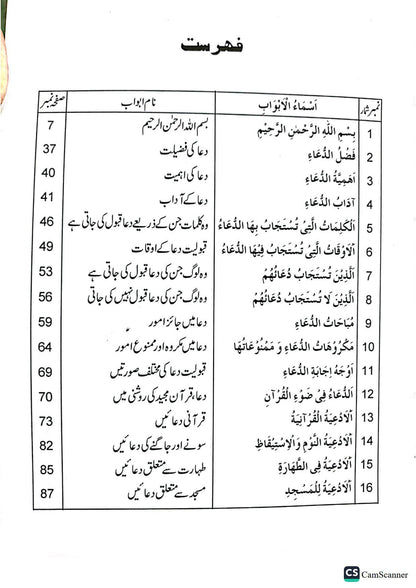 فہرست
نمبر شمار اَسْمَاءُ الْاَبْوَابِ نام ابواب صفحہ نمبر
1 بِسْمِ اللّٰهِ الرَّحْمٰنِ الرَّحِيْمِ بسم اللہ الرحمٰن الرحیم 7
2 فَضْلُ الدُّعَاءِ دعا کی فضیلت 37
3 اَهَمِيَّةُ الدُّعَاءِ دعا کی اہمیت 40
4 آدَابُ الدُّعَاءِ دعا کے آداب 41
5 اَلْكَلِمَاتُ الَّتِيْ تُسْتَجَابُ بِهَا الدُّعَاءُ وہ کلمات جن کے ذریعے دعا قبول کی جاتی ہے 46
6 اَلْاَوْقَاتُ الَّتِيْ تُسْتَجَابُ فِيْهَا الدُّعَاءُ قبولیت دعا کے اوقات 49
7 اَلَّذِيْنَ تُسْتَجَابُ دُعَائُهُمْ وہ لوگ جن کی دعا قبول کی جاتی ہے 53
8 اَلَّذِيْنَ لَا تُسْتَجَابُ دُعَائُهُمْ وہ لوگ جن کی دعا قبول نہیں کی جاتی 56
9 مُبَاحَاتُ الدُّعَاءِ دعا میں جائز امور 59
10 مَكْرُوْهَاتُ الدُّعَاءِ وَ مَمْنُوْعَاتُهَا دعا میں مکروہ اور ممنوع امور 64
11 اَوْجُهُ اِجَابَةِ الدُّعَاءِ قبولیت دعا کی مختلف صورتیں 69
12 اَلدُّعَاءُ فِيْ ضَوْءِ الْقُرْآنِ دعا، قرآن مجید کی روشنی میں 70
13 اَلْاَدْعِيَةُ الْقُرْآنِيَّةُ قرآنی دعائیں 73
14 اَلْاَدْعِيَةُ النَّوْمِ وَالْاِسْتِيْقَاظِ سونے اور جاگنے کی دعائیں 82
15 اَلْاَدْعِيَةُ فِى الطَّهَارَةِ طہارت سے متعلق دعائیں 85
16 اَلْاَدْعِيَةُ لِلْمَسْجِدِ مسجد سے متعلق دعائیں 87
CS CamScanner